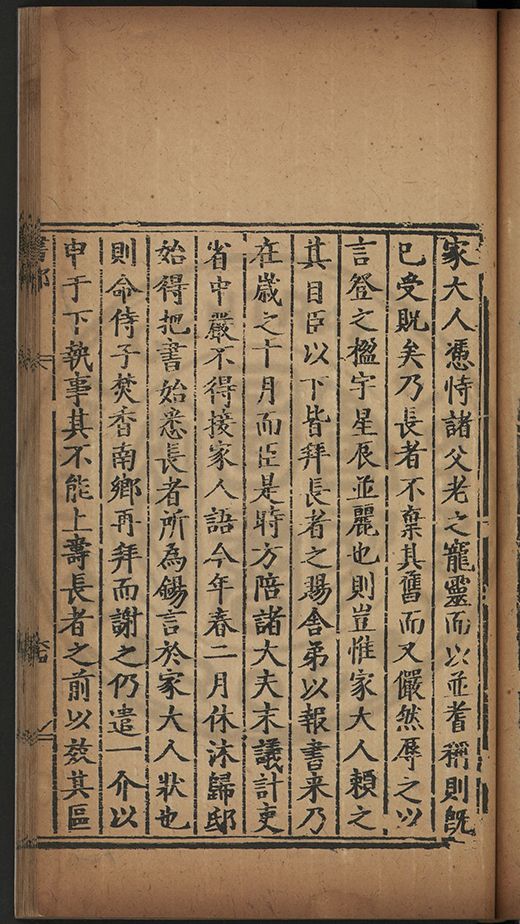 家大人憑恃諸父老之寵靈而以並耆稱則旣
已受貺矣乃長者不棄其舊而又儼然辱之以
言登之楹宇星辰並麗也則豈惟家大人賴之
其自臣以下皆拜長者之賜舍弟以報書来乃
在歲之十月而臣是時方陪諸大夫末議計吏
省中嚴不得接家人語今年春二月休沐歸邸
始得把書始悉長者所為錫言於家大人狀也
則命侍子焚香南鄉再拜而謝之仍遣一介以
申于下執事其不能上壽長者之前以效其區